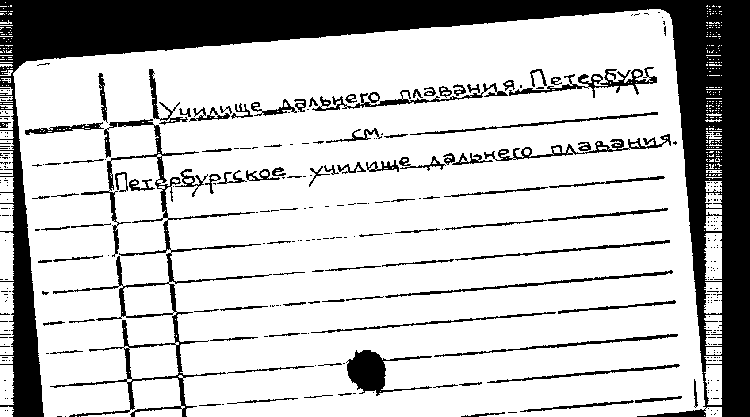 Училище дальнего плавания. Петербург
см.
Петербургское училище дальнего плавания.